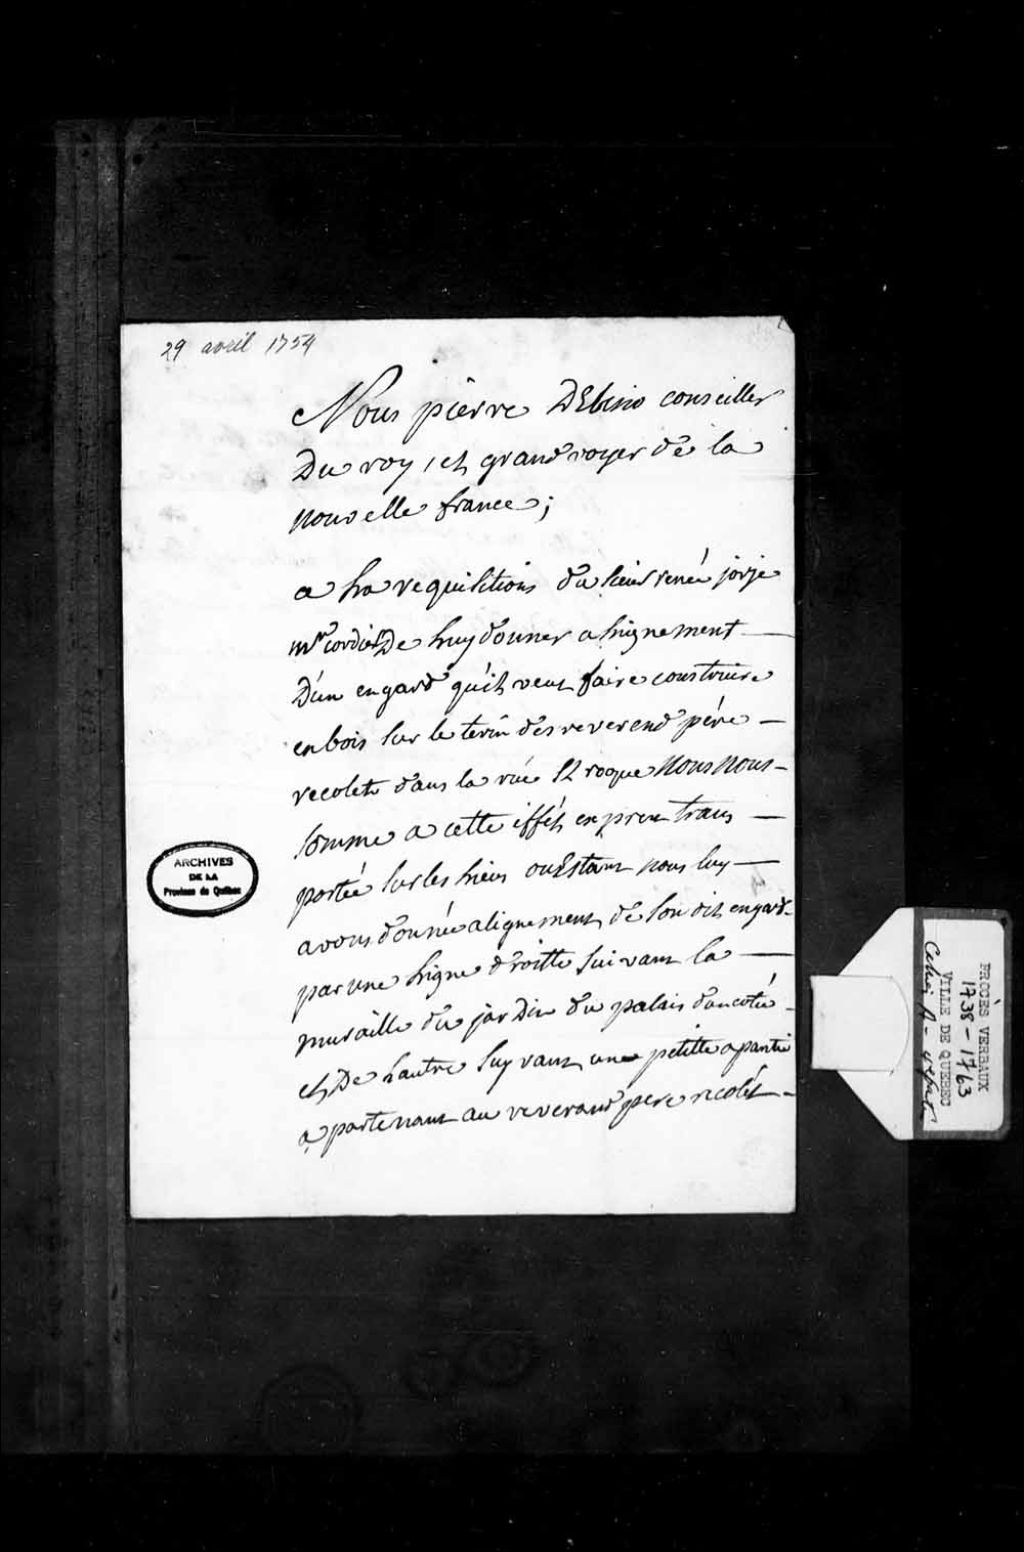 29 avril 1754
Nous pierre DEbino conseiller
Du roy, et grand voyer de la
nouvelle france;
a La requisitions du Sieur renée jorje
mtr cordier De Luy donner aLignement
D'un engard qu'il veut faire construire
en bois sur le terin des reverend pére
recolets dans la ruë St roque Nous Nous
somme a cette effét expreu trans
portée sur les Lieux ou Estant nous luy
avons donnée alignement de son dit engard
par une Ligne droitte suivant la
muraille du jardin du palais d'un coté
et De Lautre suyvant une petitte apanti
apartenant au reverand pere recolét
ARCHIVES
DE LA
Province de Québec
PROCÈS VERBAUX
1738-1763
VILLE DE QUEBEC
Cahier A